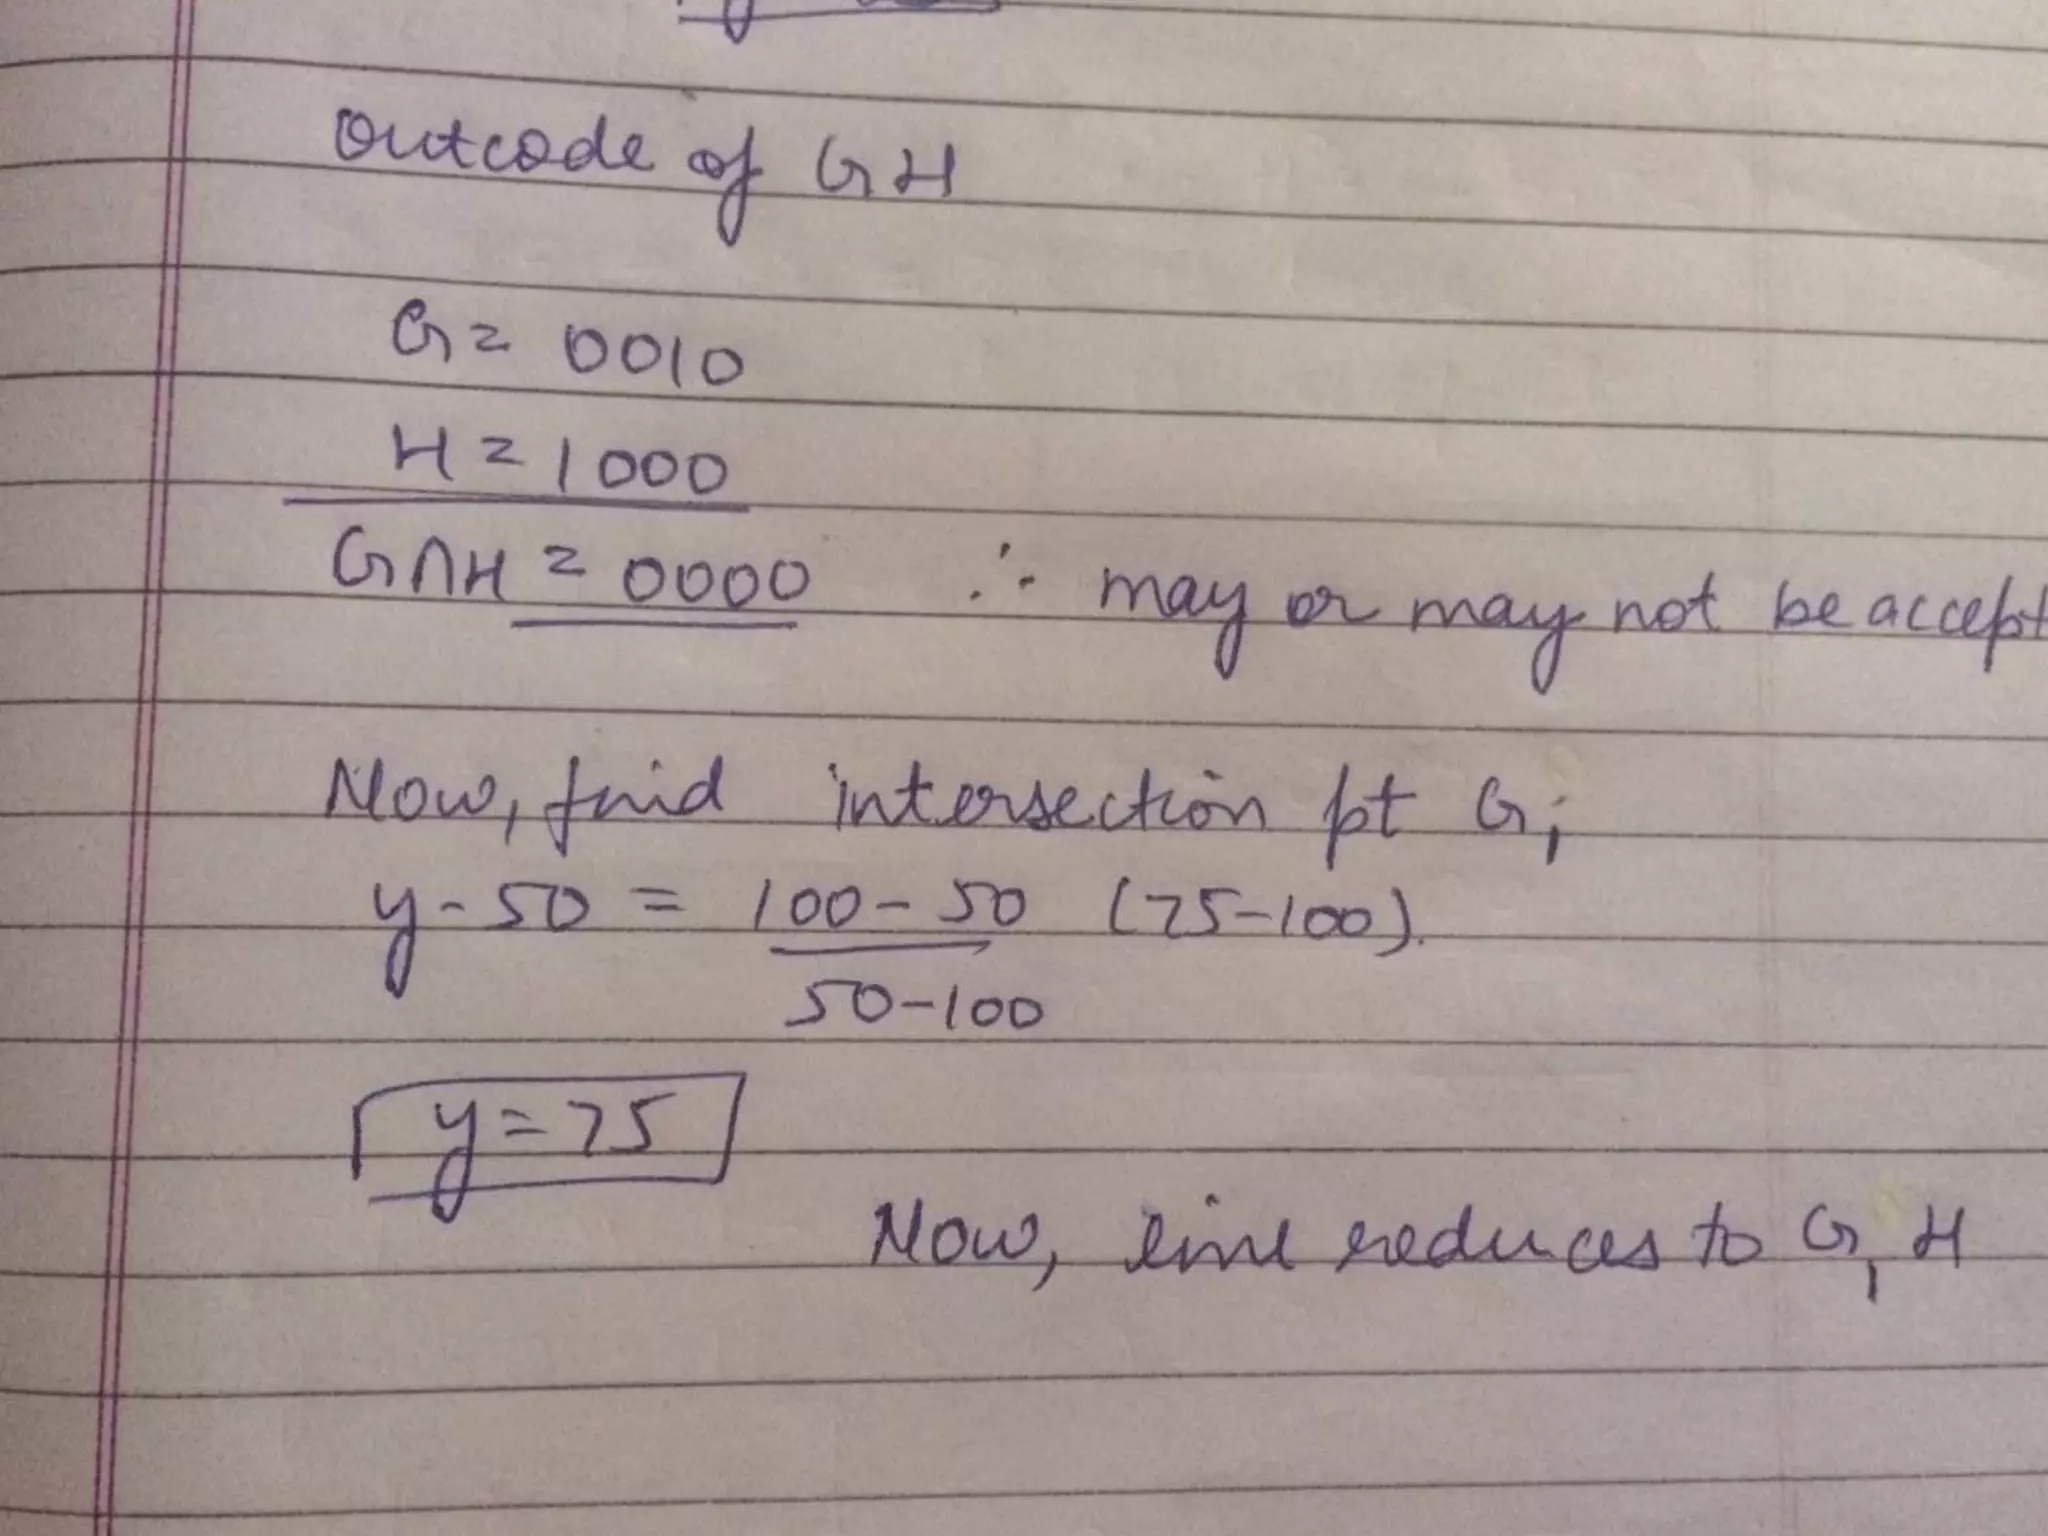 Outcode of GH
G = 0010
H = 1000
G∩H = 0000 ∴ may or may not be accept
Now, find intersection pt G1
y - 50 = 100 - 50 (75-100).
50-100
y = 75
Now, line reduces to G1 H